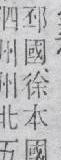 邳國徐本國
泗州州北五